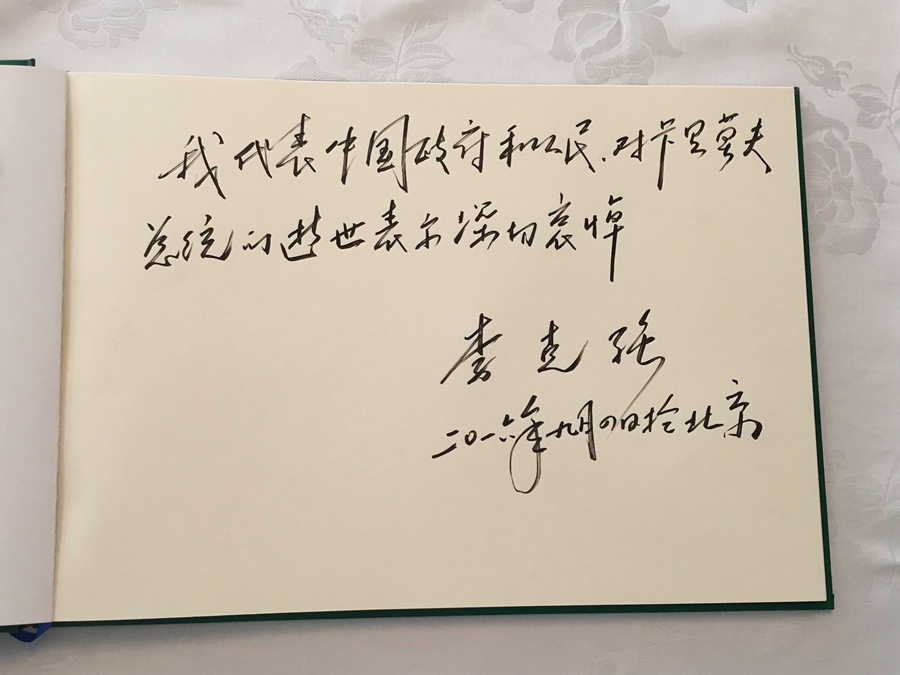 我代表中国政府和人民、对卡里莫夫
总统的逝世表示深切哀悼
李克强
二〇一六年九月四日于北京